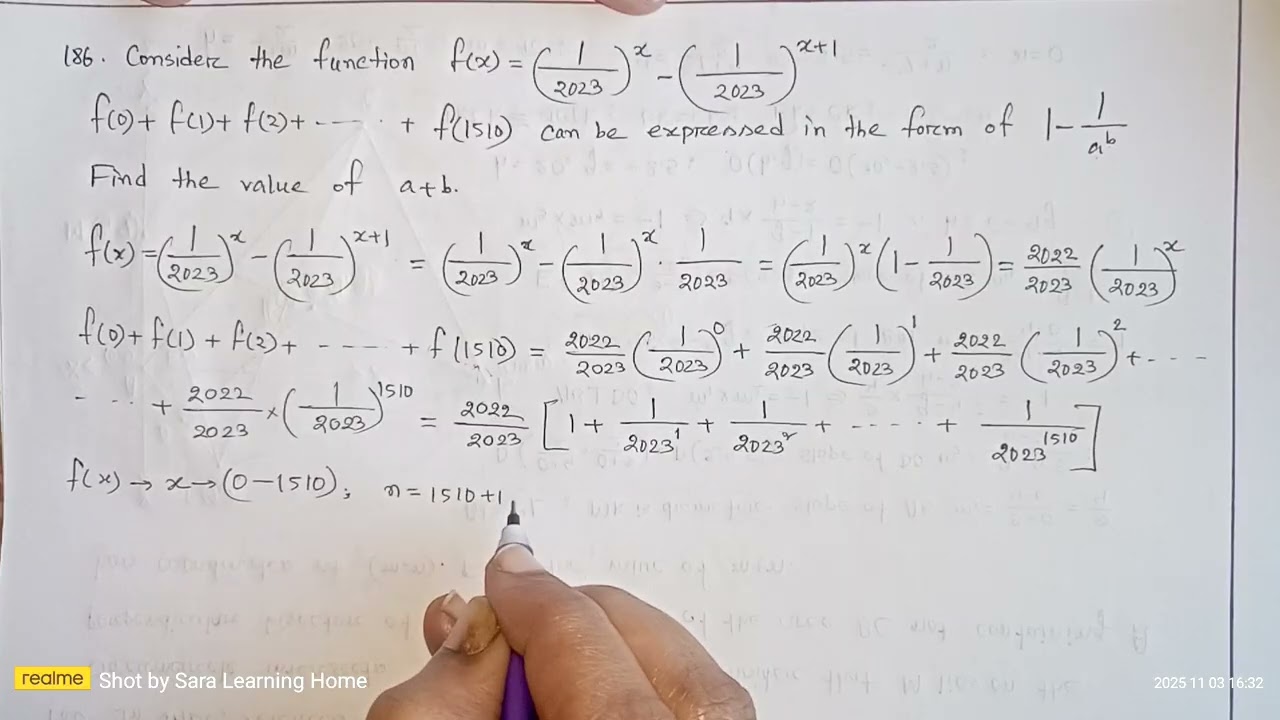 186. Consider the function f(x) = (1/2023)^x - (1/2023)^(x+1)
f(0) + f(1) + f(2) + ----- + f(1510) can be expressed in the form of 1 - 1/a^b
Find the value of a+b.
f(x) = (1/2023)^x - (1/2023)^(x+1) = (1/2023)^x - (1/2023)^x · 1/2023 = (1/2023)^x (1 - 1/2023) = 2022/2023 (1/2023)^x
f(0) + f(1) + f(2) + ----- + f(1510) = 2022/2023 (1/2023)^0 + 2022/2023 (1/2023)^1 + 2022/2023 (1/2023)^2 + ----
---- + 2022/2023 × (1/2023)^1510 = 2022/2023 [1 + 1/2023^1 + 1/2023^2 + ----- + 1/2023^1510]
f(x) → x → (0-1510); n = 1510+1
realme Shot by Sara Learning Home
2025 11 03 16:32